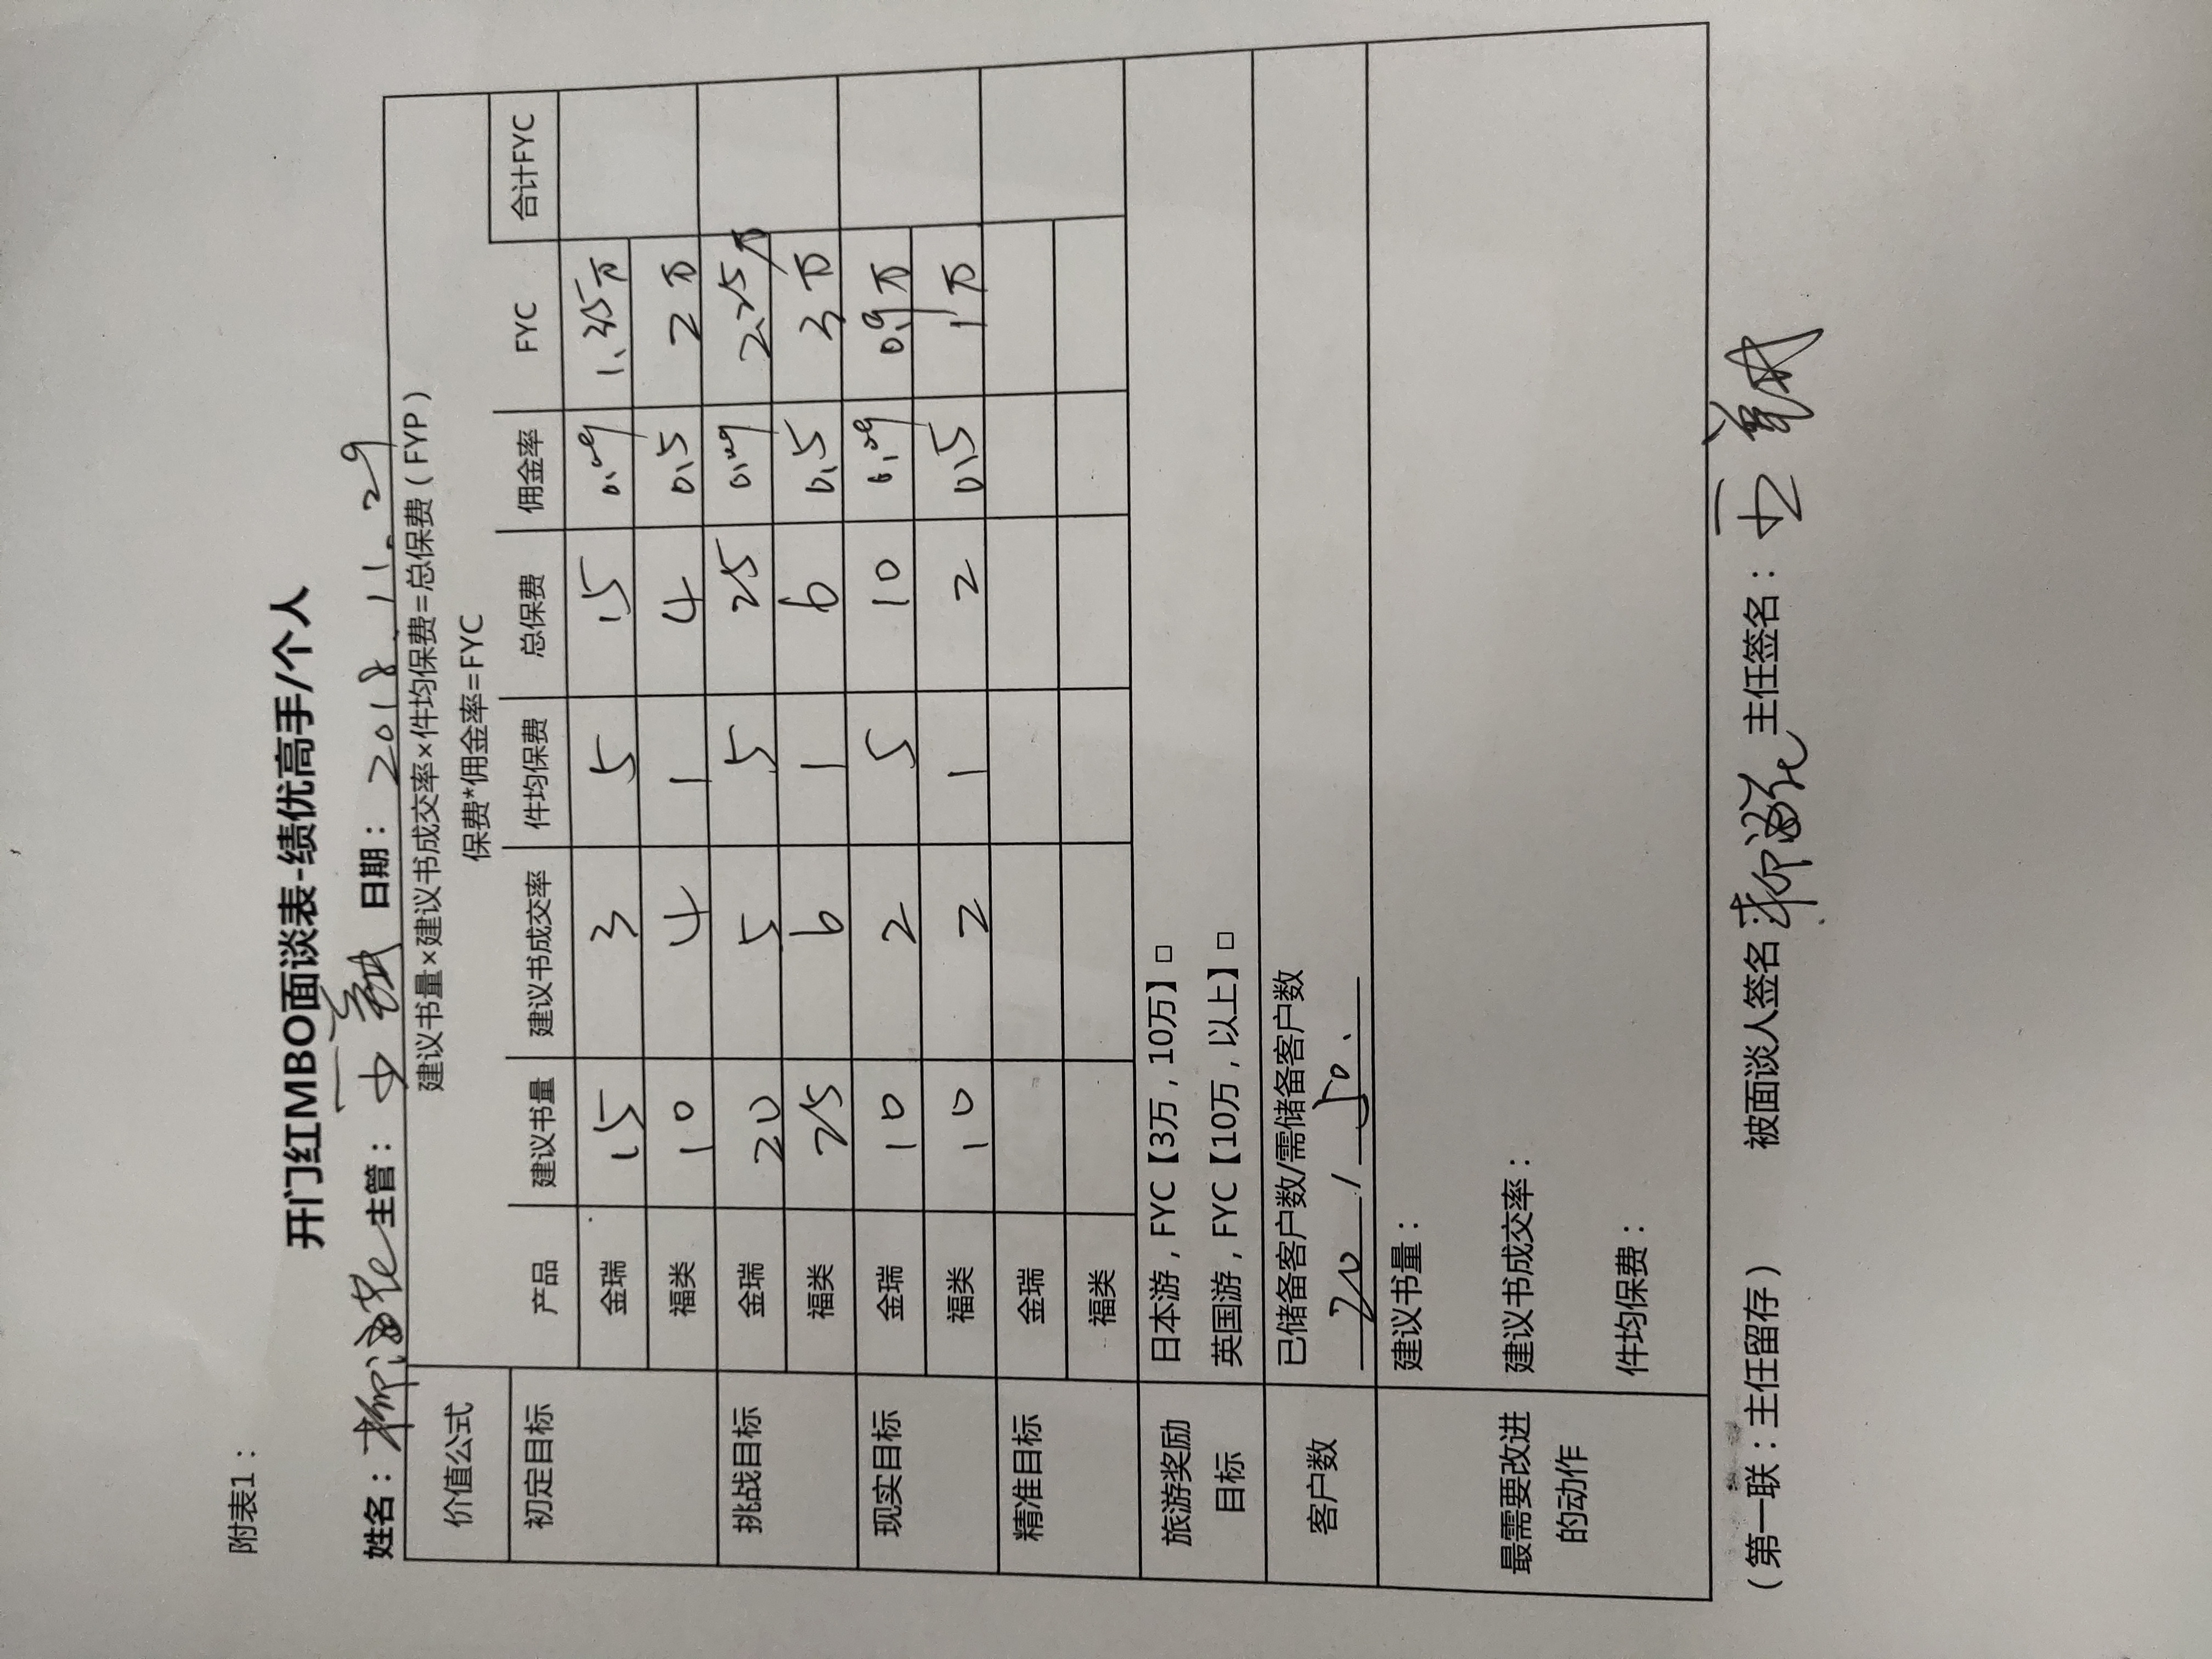 附表1：
开门红MBO面谈表-绩优高手/个人
姓名： 主管： 日期：2018.11.29
价值公式 建议书量×建议书成交率×件均保费=总保费（FYP）
保费*佣金率=FYC
产品 建议书量 建议书成交率 件均保费 总保费 佣金率 FYC 合计FYC
初定目标 金瑞 15 3 5 15 0.09 1.35万
福类 10 4 1 4 0.5 2万
挑战目标 金瑞 20 5 5 25 0.09 2.25万
福类 25 6 1 6 0.5 3万
现实目标 金瑞 10 2 5 10 0.09 0.9万
福类 10 2 1 2 0.5 1万
精准目标 金瑞
福类
旅游奖励目标 日本游，FYC【3万，10万】□
英国游，FYC【10万，以上】□
客户数 已储备客户数/需储备客户数
20 / 50.
最需要改进的动作 建议书量：
建议书成交率：
件均保费：
（第一联：主任留存） 被面谈人签名 主任签名：